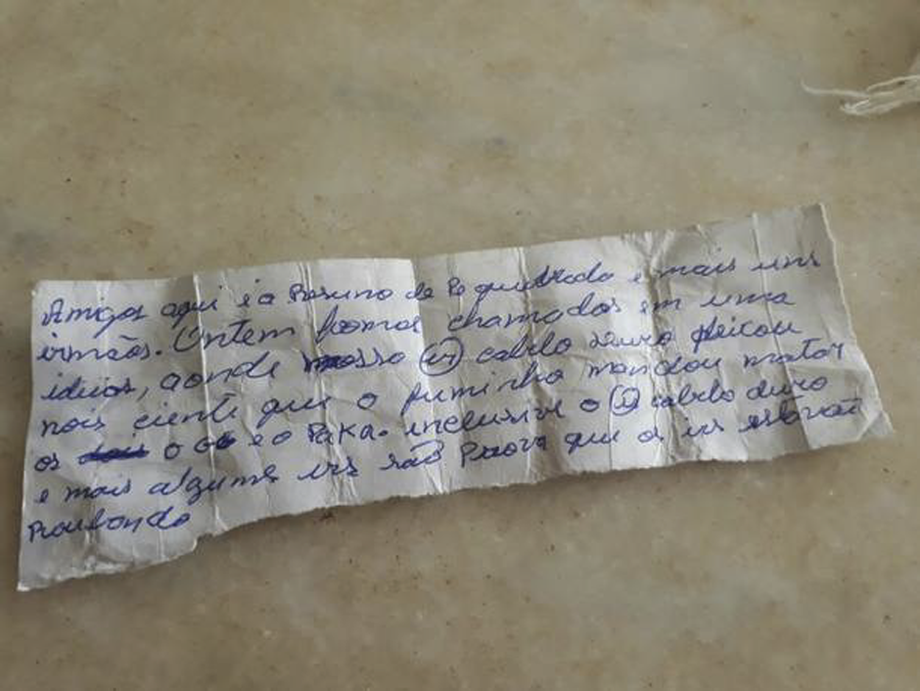 Amigos aqui é o Resumo da Rp quebrado e mais uns
irmãos. Ontem fomos chamados em uma
ideias, aonde nosso (ir) cabelo duro deixou
nois ciente que o fuminho mandou matar
os o GG e o Paka. inclusive o (ir) cabelo duro
e mais alguns irs são Prova que os irs estavão
Roubando